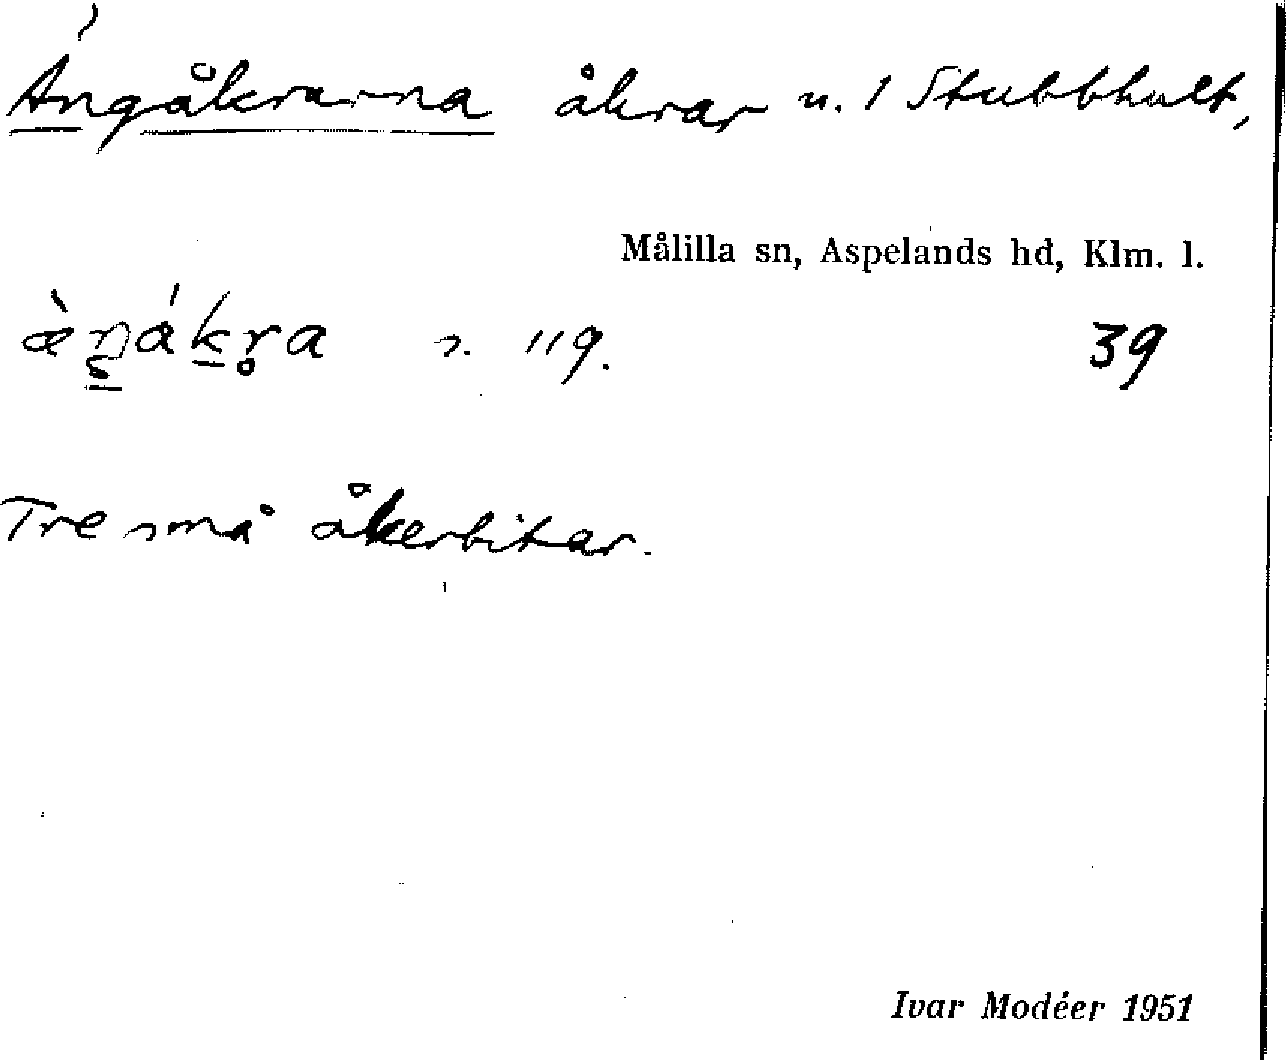 Ängåkrarna åkrar n. 1 Stubbhult,
Målilla sn, Aspelands hd, Klm. l.
s. 119. 39
Tre små åkerbitar.
Ivar Modéer 1951